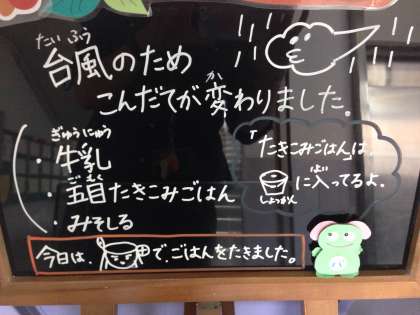 たい ふう
台風のため
か
こんだてが変わりました。
ぎゅうにゅう
・牛乳
ごもく
・五目たきこみごはん
・みそしる
「たきこみごはん」は、
しょっかん
に入ってるよ。
はい
今日は、
で、ごはんをたきました。